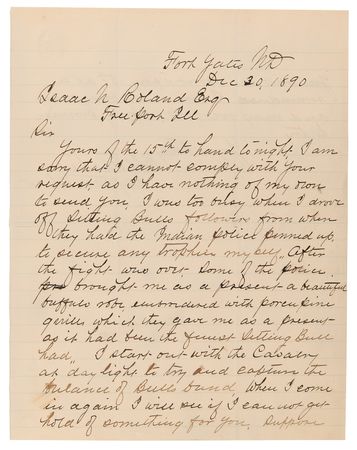 Fort Yates ND
Dec 20, 1890
Isaac N Boland Esq
Freeport Ill
Sir
Yours of the 15th to hand to night, I am
sorry that I cannot comply with your
request, as I have nothing of my own
to send you, I was too busy when I drove
off Sitting Bulls followers from where
they had the Indian police penned up,
to secure any trophies myself, After
the fight was over some of the police
brought me as a present a beautiful
buffalo robe embroidered with porcupine
quills which they gave me as a present
as it had been the finest Sitting Bull
had, I start out with the Cavalry
at day light to try and capture the
balance of Bulls band, When I come
in again I will see if I can not get
hold of something for you, Suppose